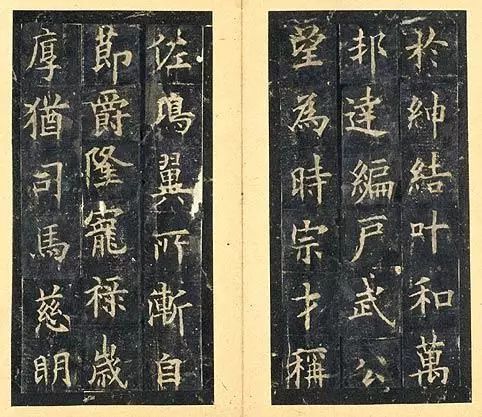 於紳結叶和萬
邦達編戸武公
望為時宗才稱
佐鴻翼所漸自
節爵隆寵祿歲
厚猶司馬慈明